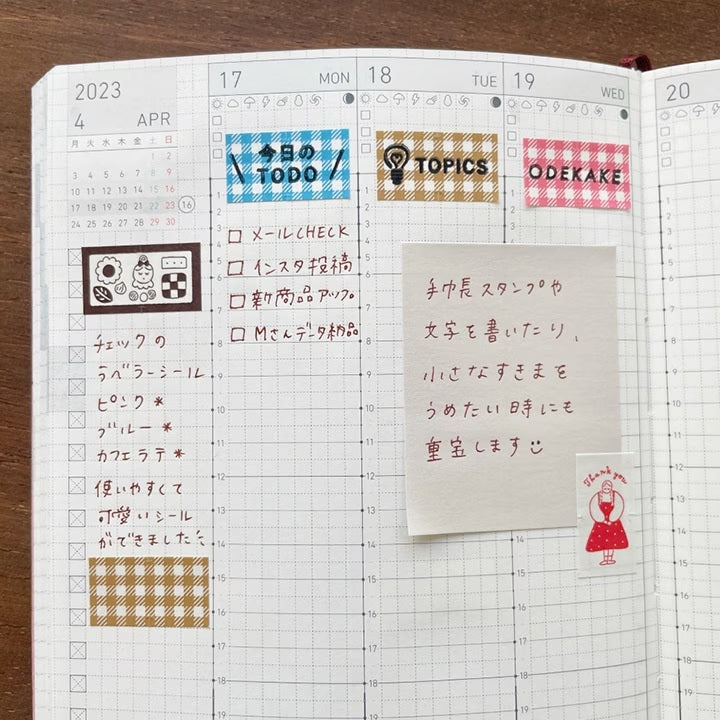 2023
4 APR
月 火 水 木 金 土 日
1 2
3 4 5 6 7 8 9
10 11 12 13 14 15 16
17 18 19 20 21 22 23
24 25 26 27 28 29 30
16
チェックの
ラベラーシール
ピンク*
ブルー*
カフェラテ*
使いやすくて
可愛いシール
ができました
17 MON
今日の
TODO
メールCHECK
インスタ投稿
新商品アップ
Mさんデータ納品
18 TUE
TOPICS
19 WED
ODEKAKE
手帳スタンプや
文字を書いたり、
小さなすきまを
うめたい時にも
重宝します
Thank you
20
1
2
3
4
5
6
7
8
9
10
11
12
13
14
15
16
17
18
19